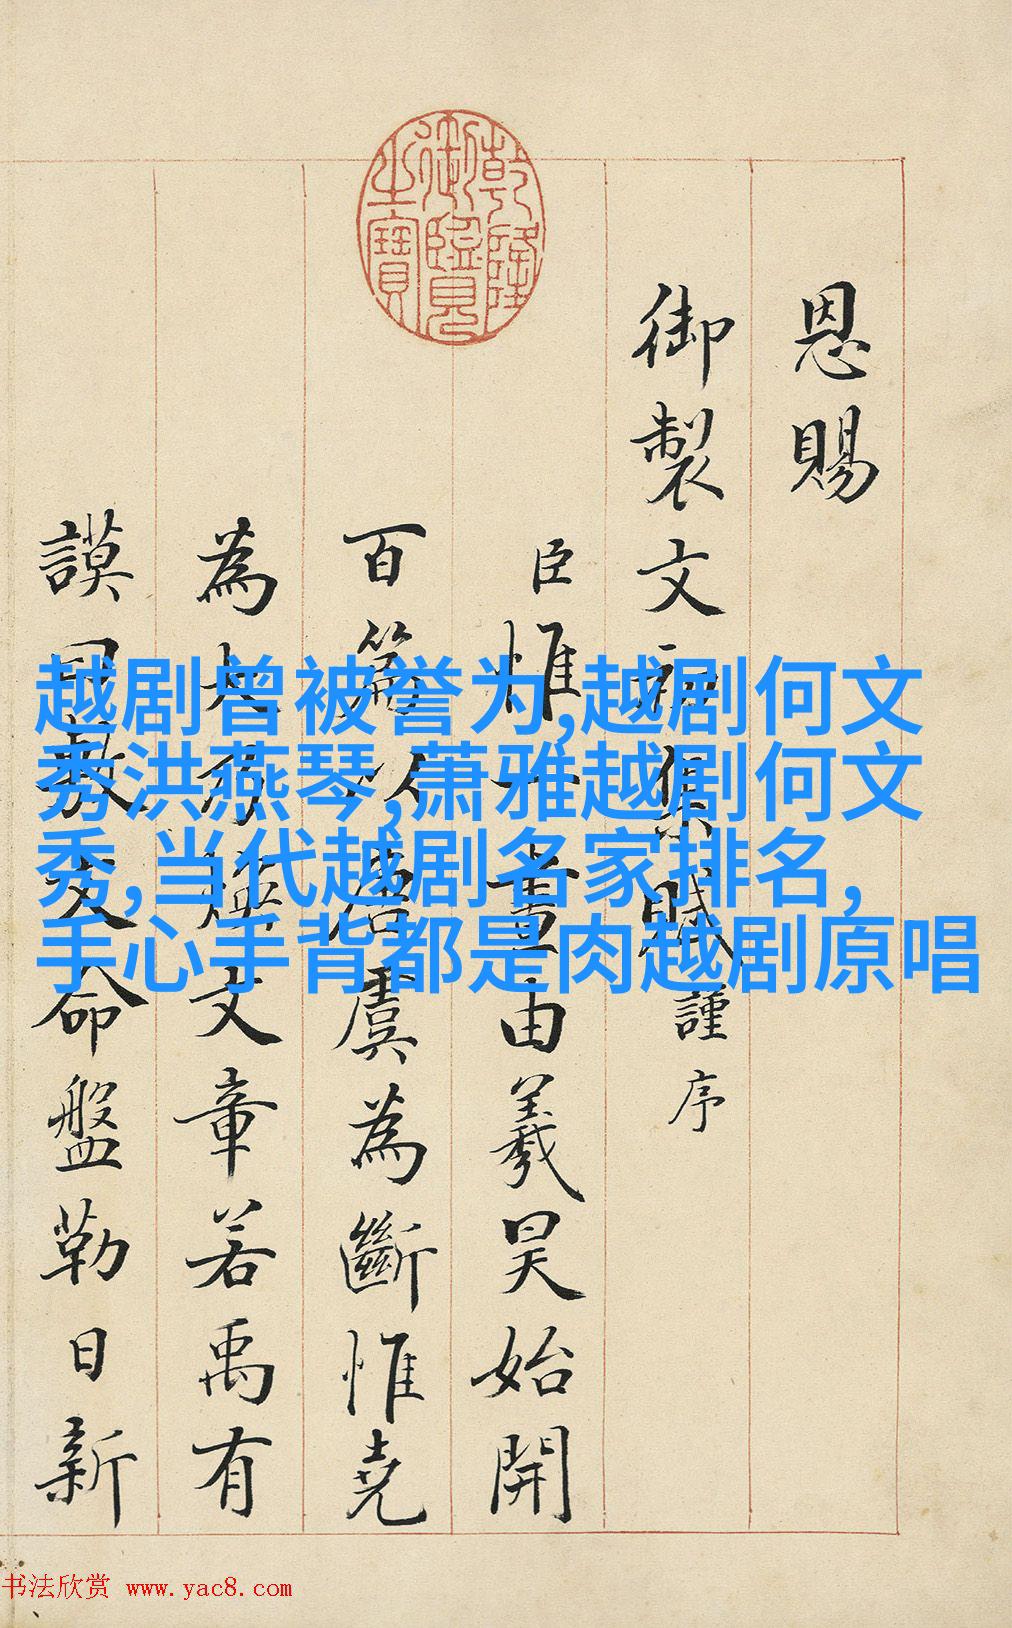 乾隆御覽之寶
恩賜
御製文初集賦謹序
臣惟一畫由羲昊始開
百篇以唐虞為斷惟堯
為大乃煥文章若禹有
謨曰敷文命盤勒日新
越剧曾被誉为,越剧何文
秀洪燕琴,萧雅越剧何文
秀,当代越剧名家排名,
手心手背都是肉越剧原唱
书法欣赏 www.yac8.com